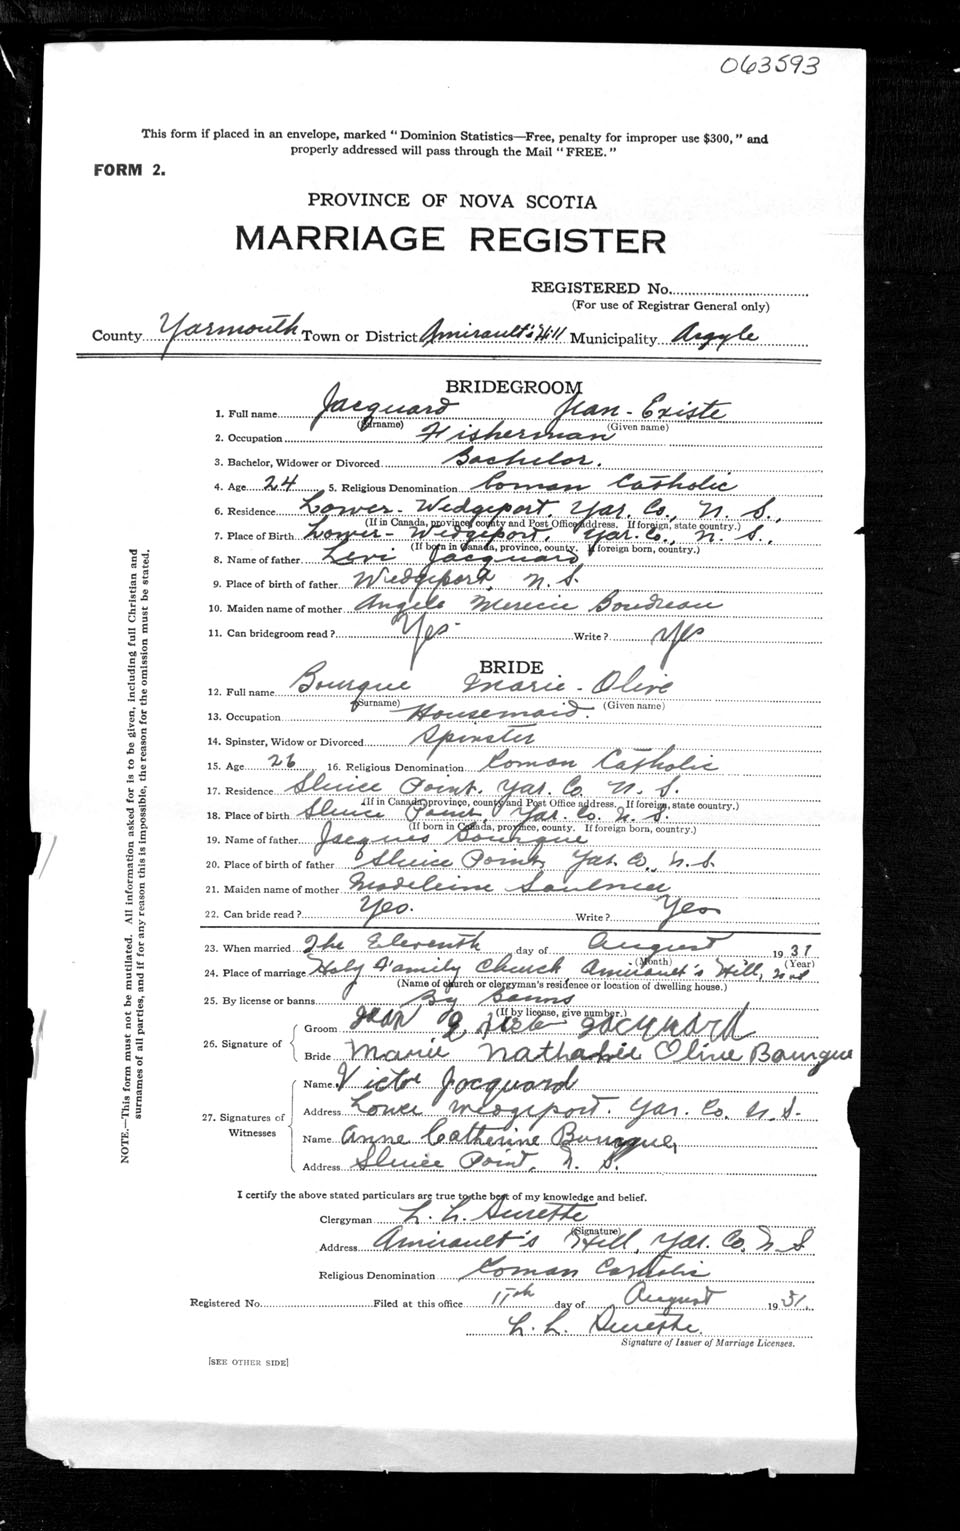 063593
This form if placed in an envelope, marked "Dominion Statistics—Free, penalty for improper use $300," and
properly addressed will pass through the Mail "FREE."
FORM 2.
PROVINCE OF NOVA SCOTIA
MARRIAGE REGISTER
REGISTERED No.
(For use of Registrar General only)
County Yarmouth Town or District Amirault's Hill Municipality Argyle
BRIDEGROOM
1. Full name Jacquard Jean-Existe
(Surname) (Given name)
2. Occupation Fisherman
3. Bachelor, Widower or Divorced Bachelor.
4. Age 24 5. Religious Denomination Roman Catholic
6. Residence Lower-Wedgeport, Yar. Co., N. S.,
(If in Canada, province, county and Post Office address. If foreign, state country.)
7. Place of Birth Lower-Wedgeport, Yar. Co., N. S.,
(If born in Canada, province, county. If foreign born, country.)
8. Name of father Levi Jacquard
9. Place of birth of father Wedgeport, N. S.
10. Maiden name of mother Angele Boudreau
11. Can bridegroom read? Yes Write? Yes
BRIDE
12. Full name Bourque Marie-Olive
(Surname) (Given name)
13. Occupation Housemaid.
14. Spinster, Widow or Divorced Spinster
15. Age 26 16. Religious Denomination Roman Catholic
17. Residence Sluice Point, Yar. Co. N. S.
(If in Canada, province, county and Post Office address. If foreign, state country.)
18. Place of birth Sluice Point, Yar. Co. N. S.
(If born in Canada, province, county. If foreign born, country.)
19. Name of father Jacques Bourque
20. Place of birth of father Sluice Point, Yar. Co., N. S.
21. Maiden name of mother Madeleine Saulnier
22. Can bride read? Yes. Write? Yes
23. When married The Eleventh day of August 1931
(Month) (Year)
24. Place of marriage Holy Family Church Amirault's Hill,
(Name of church or clergyman's residence or location of dwelling house.)
25. By license or banns By Banns
(If by license, give number.)
26. Signature of
Groom Jean Jacquard
Bride Marie Nathalie Olive Bourque
27. Signatures of Witnesses
Name Victor Jacquard
Address Lower Wedgeport. Yar. Co. N. S.
Name Anne Catherine Bourque,
Address Sluice Point, N. S.
I certify the above stated particulars are true to the best of my knowledge and belief.
Clergyman L. L. Surette
(Signature)
Address Amirault's Hill, Yar. Co. N. S
Religious Denomination Roman Catholic
Registered No. Filed at this office 11th day of August 1931.
L. L. Surette.
Signature of Issuer of Marriage Licenses.
[SEE OTHER SIDE]
NOTE.—This form must not be mutilated. All information asked for is to be given, including full Christian and
surnames of all parties, and if for any reason this is impossible, the reason for the omission must be stated.